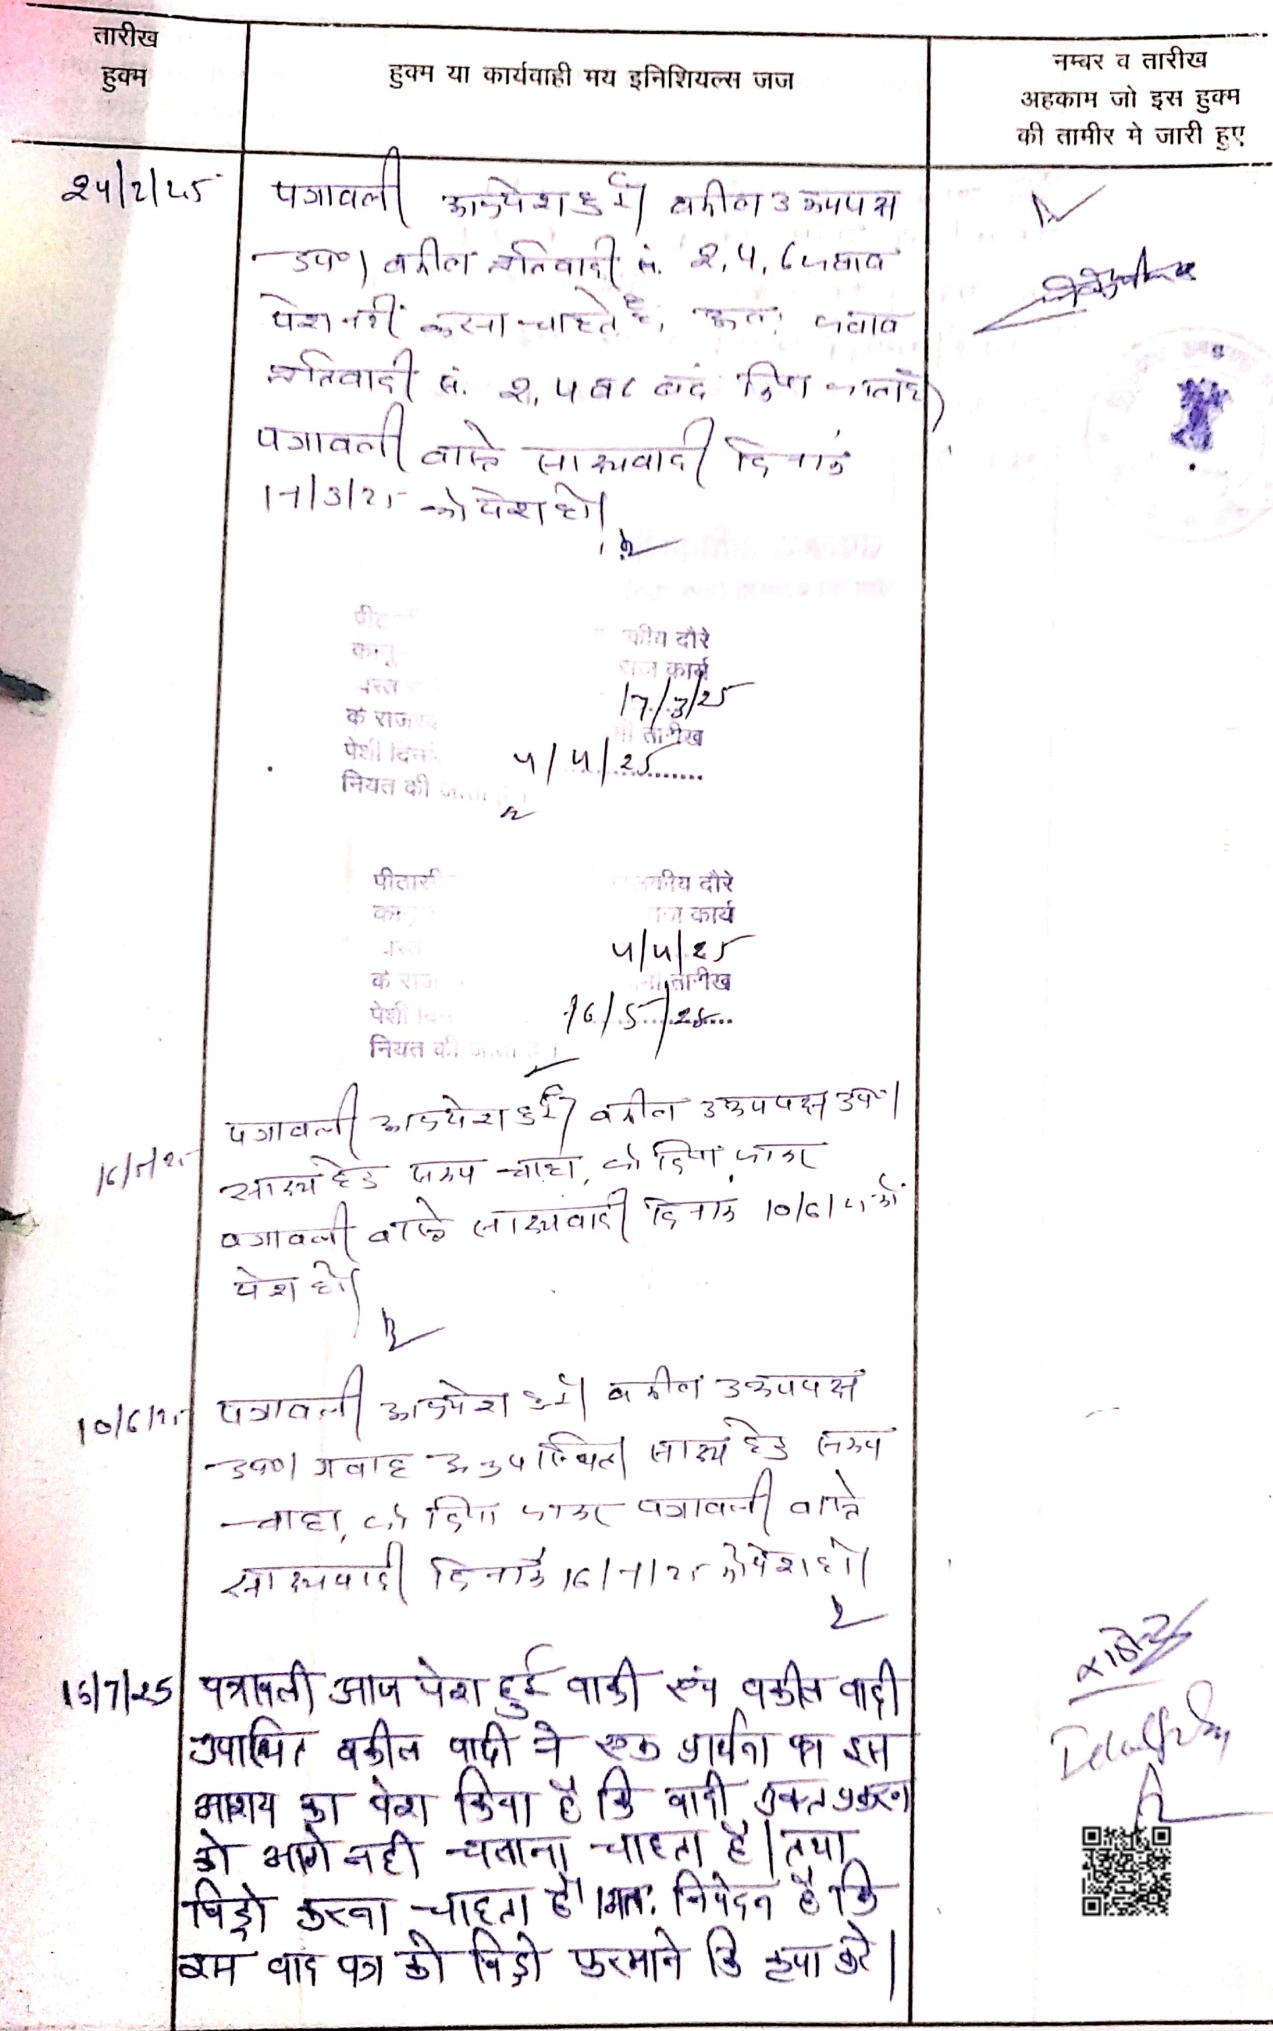 तारीख
हुक्म
हुक्म या कार्यवाही मय इनिशियल्स जज
नम्बर व तारीख
अहकाम जो इस हुक्म
की तामीर मे जारी हुए
24/2/25
पत्रावली आज पेश हुई। वकील उभयपक्ष
उप०। वकील प्रतिवादी सं. 2, 4, 6 जवाब
पेश नहीं करना चाहते है, अतः जवाब
प्रतिवादी सं. 2, 4 व 6 बंद किया जाता है।
पत्रावली वास्ते साक्ष्यवादी दिनांक
17/3/25 को पेश हो।
कीय दौरे
राज कार्य
17/3/25
के राज
तारीख
पेशी
4/4/25
नियत की
पीठासी
कीय दौरे
कार्य
4/4/25
के राज
तारीख
पेशी
16/5/25
नियत की
16/5/25
पत्रावली आज पेश हुई। वकील उभयपक्ष उप०।
साक्ष्य हेतु समय चाहा, जो दिया जाकर
पत्रावली वास्ते साक्ष्यवादी दिनांक 10/6/25 को
पेश हो।
10/6/25
पत्रावली आज पेश हुई। वकील उभयपक्ष
उप०। गवाह अनुपस्थित। साक्ष्य हेतु समय
चाहा, जो दिया जाकर पत्रावली वास्ते
साक्ष्यवादी दिनांक 16/7/25 को पेश हो।
16/7/25
पत्रावली आज पेश हुई वादी एवं वकील वादी
उपास्थित वकील वादी ने एक प्रार्थना का इस
आशय का पेश किया है कि वादी उक्त प्रकरण
को आगे नही चलाना चाहता है। तथा
विड्रो करना चाहता है। अतः निवेदन है कि
इस वाद पत्र को विड्रो फरमाने कि कृपा करे।